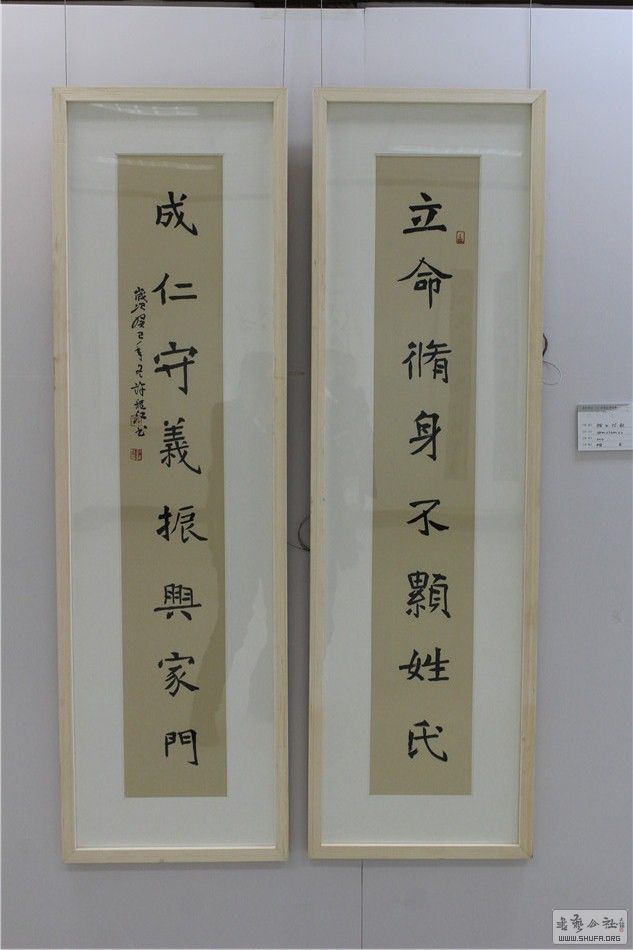 立命脩身不顯姓氏
成仁守義振興家門
歲次癸巳年冬許
書
WWW.SHUFA.ORG